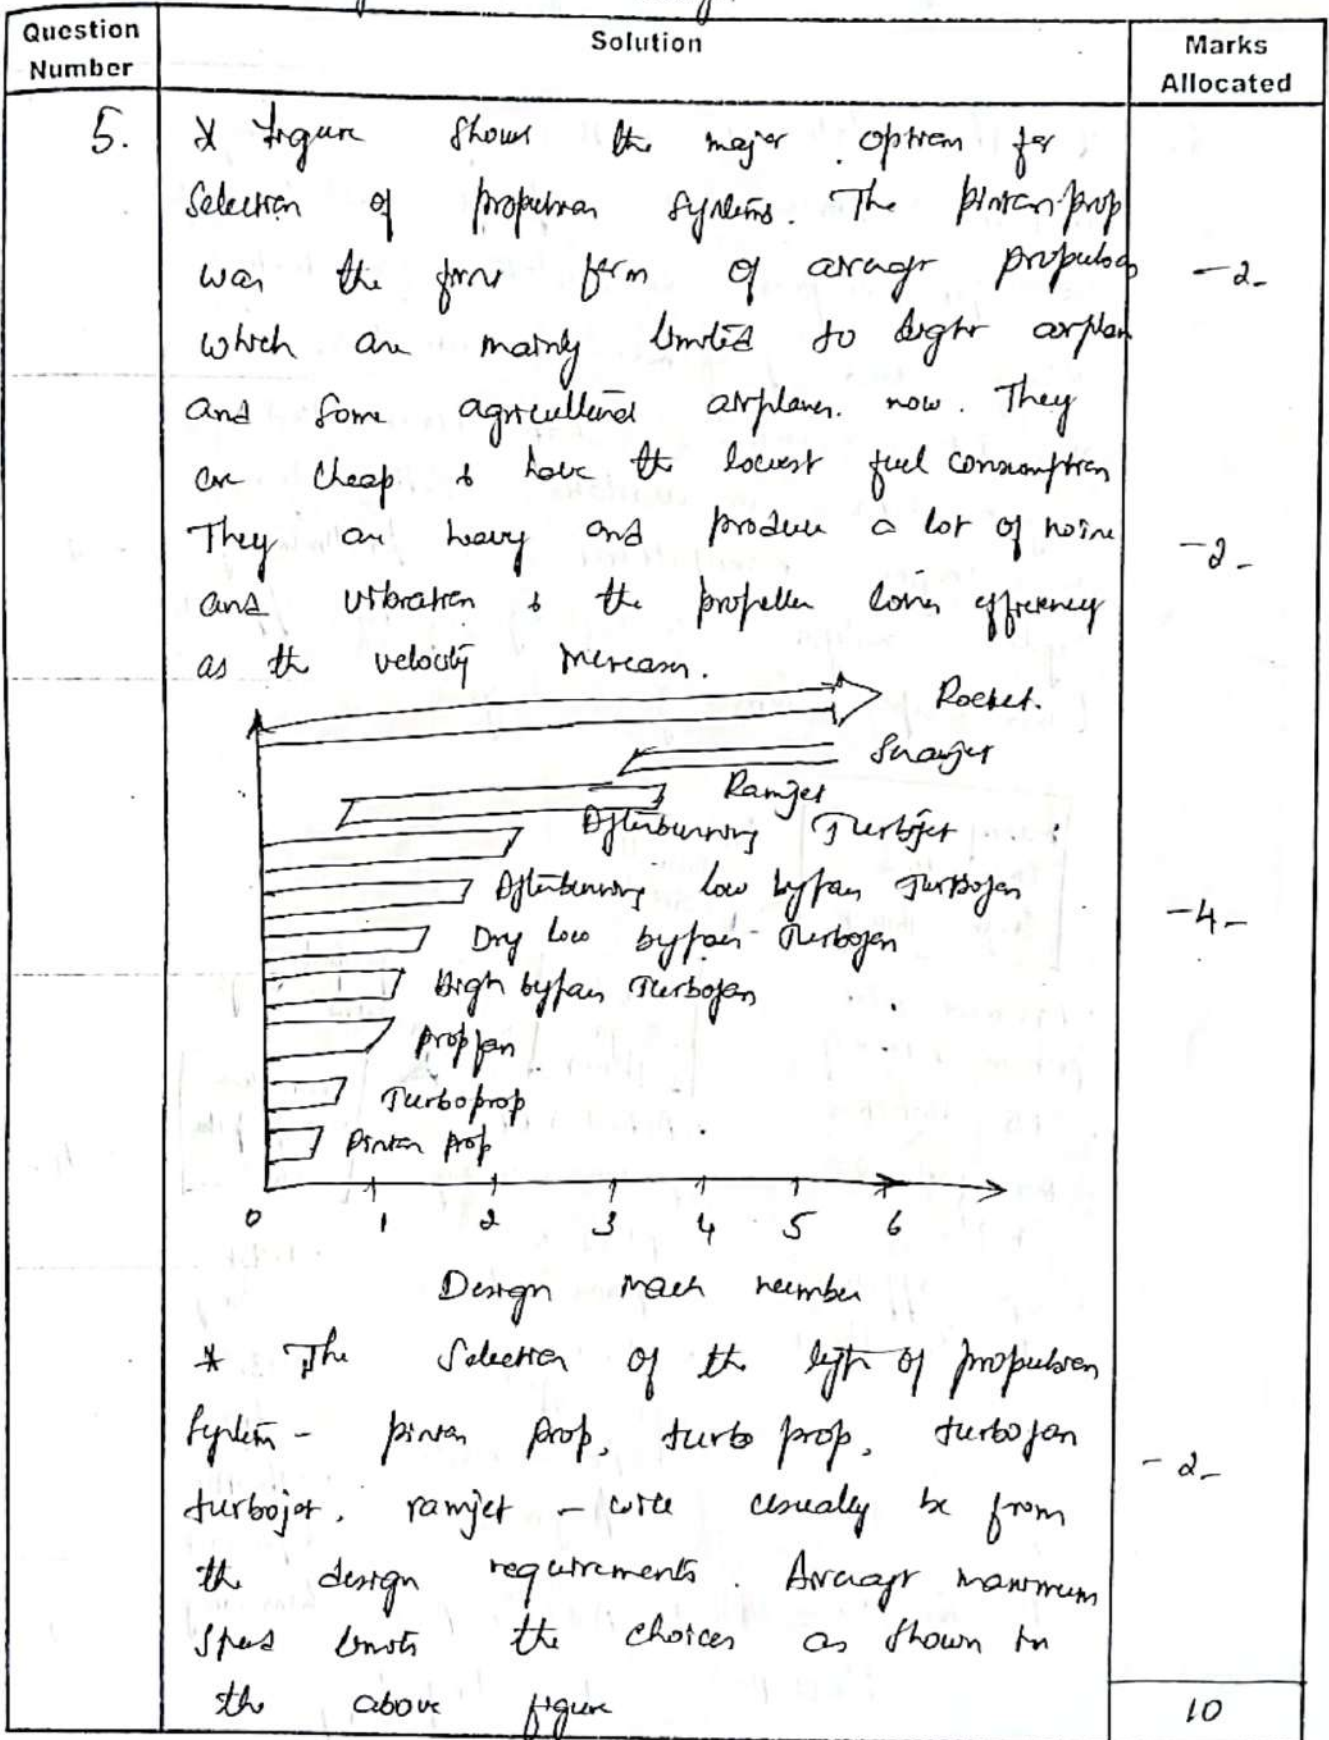 Question Number
Solution
Marks Allocated
5.
* Figure shows the major option for
selection of propulsion systems. The piston-prop
was the first form of aircraft propulsion
-2-
which are mainly limited to light airplan
and some agricultural airplanes. now. They
are cheap & have the lowest fuel consumption
They are heavy and produce a lot of noise
-2-
and vibration & the propeller loses efficiency
as the velocity increases.
Rocket.
Scramjet
Ramjet
Afterburning Turbojet
Afterburning low bypass Turbofan
-4-
Dry low bypass Turbofan
High bypass Turbofan
Propfan
Turboprop
Piston prop
0 1 2 3 4 5 6
Design Mach number
* The selection of the type of propulsion
System - piston prop, turbo prop, turbofan
-2-
turbojet, ramjet - will usually be from
the design requirements. Aircraft maximum
speed limits the choices as shown in
the above figure
10